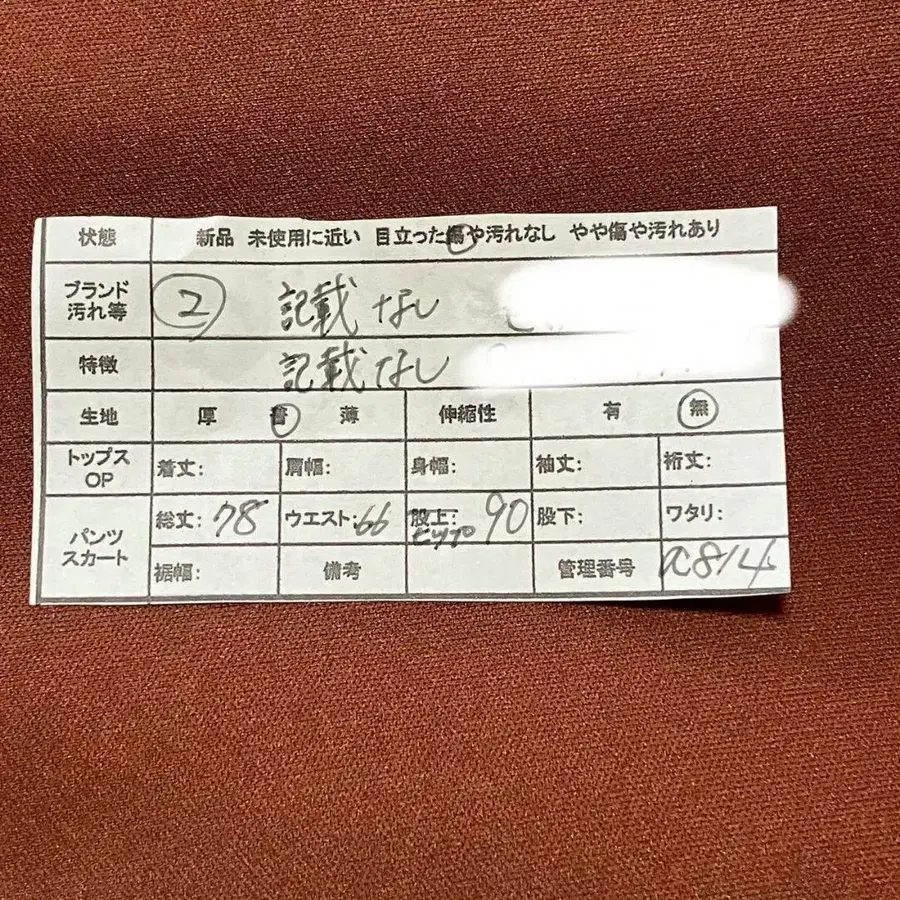 状態 新品 未使用に近い 目立った傷や汚れなし やや傷や汚れあり
ブランド 汚れ等 2 記載なし
特徴 記載なし
生地 厚 普 薄 伸縮性 有 無
トップス OP 着丈: 肩幅: 身幅: 袖丈: 裄丈:
パンツ スカート 総丈: 78 ウエスト: 66 股上: ヒップ 90 股下: ワタリ:
裾幅: 備考 管理番号 a814